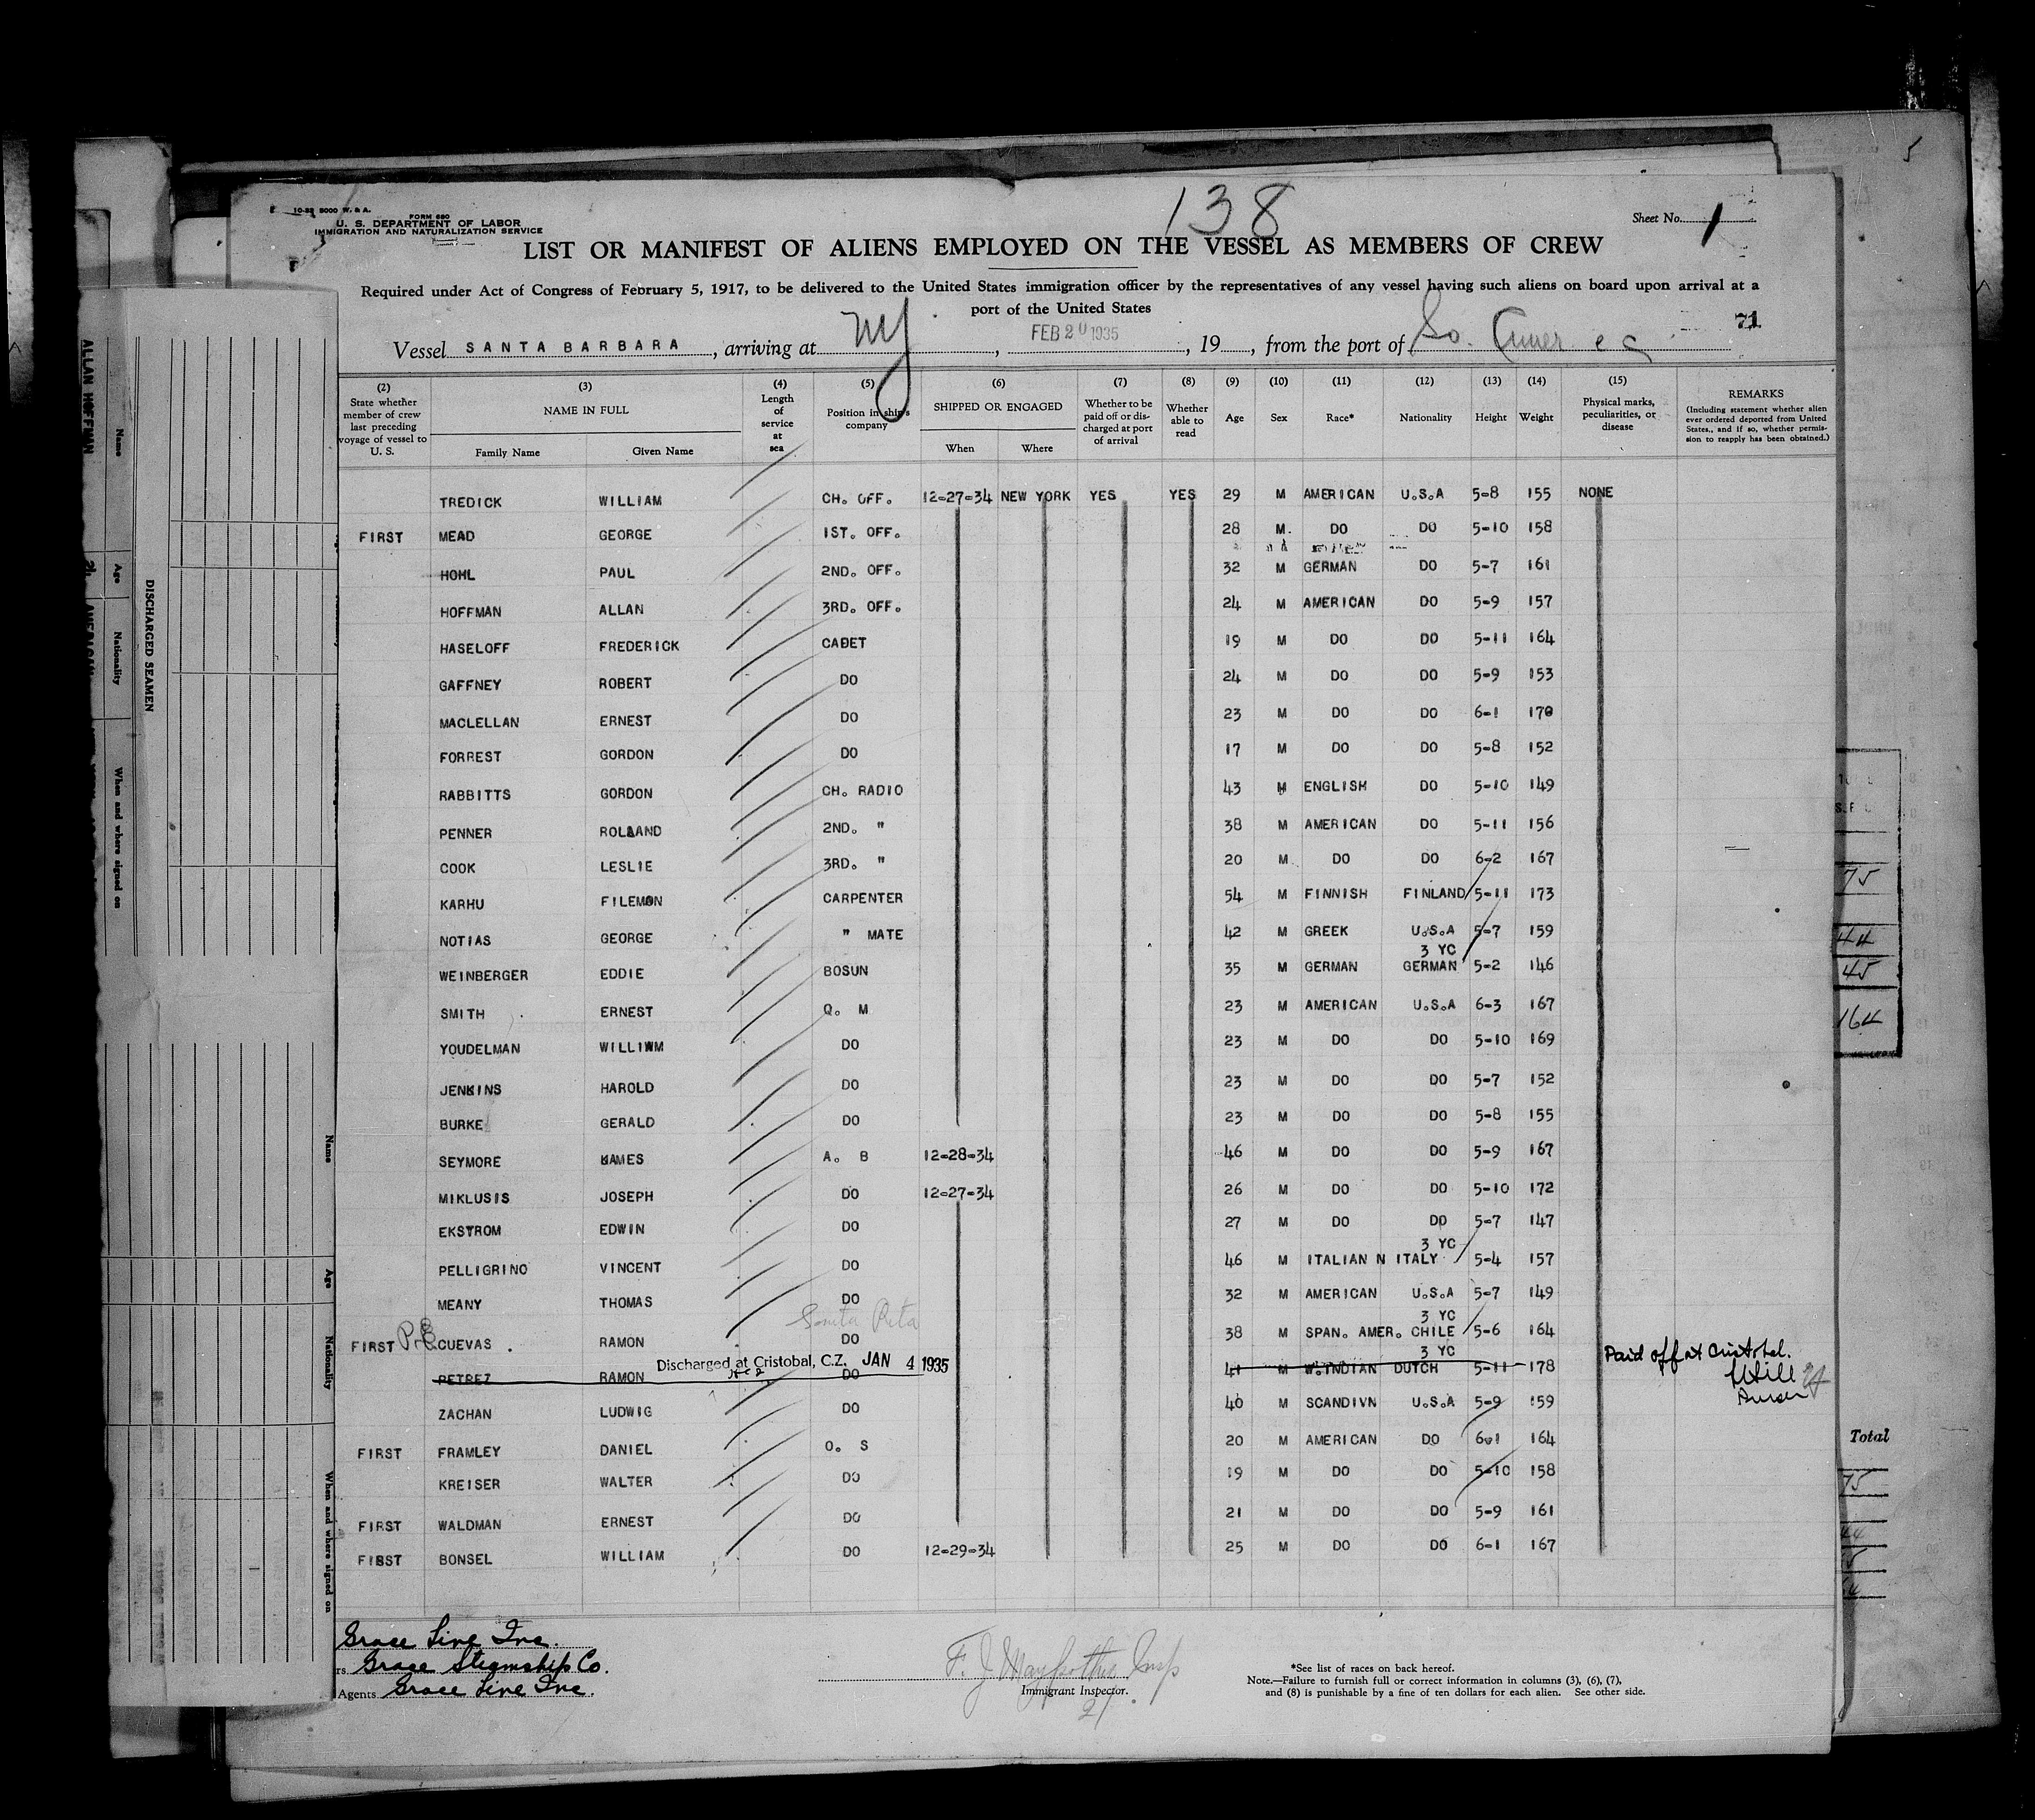 138
10-33 5000 W. & A.
FORM 680
U. S. DEPARTMENT OF LABOR
IMMIGRATION AND NATURALIZATION SERVICE
Sheet No. 1
LIST OR MANIFEST OF ALIENS EMPLOYED ON THE VESSEL AS MEMBERS OF CREW
Required under Act of Congress of February 5, 1917, to be delivered to the United States immigration officer by the representatives of any vessel having such aliens on board upon arrival at a
port of the United States
71
Vessel SANTA BARBARA, arriving at NY, FEB 20 1935, 19, from the port of So.
(2) (3) (4) (5) (6) (7) (8) (9) (10) (11) (12) (13) (14) (15)
State whether member of crew last preceding voyage of vessel to U. S. NAME IN FULL Family Name Given Name Length of service at sea Position in ship's company SHIPPED OR ENGAGED When Where Whether to be paid off or discharged at port of arrival Whether able to read Age Sex Race* Nationality Height Weight Physical marks, peculiarities, or disease REMARKS
(Including statement whether alien ever ordered deported from United States., and if so, whether permission to reapply has been obtained.)
TREDICK WILLIAM CH. OFF. 12-27-34 NEW YORK YES YES 29 M AMERICAN U.S.A 5-8 155 NONE
FIRST MEAD GEORGE 1ST. OFF. 28 M. DO DO 5-10 158
HOHL PAUL 2ND. OFF. 32 M GERMAN DO 5-7 161
HOFFMAN ALLAN 3RD. OFF. 24 M AMERICAN DO 5-9 157
HASELOFF FREDERICK CADET 19 M DO DO 5-11 164
GAFFNEY ROBERT DO 24 M DO DO 5-9 153
MACLELLAN ERNEST DO 23 M DO DO 6-1 170
FORREST GORDON DO 17 M DO DO 5-8 152
RABBITTS GORDON CH. RADIO 43 M ENGLISH DO 5-10 149
PENNER ROLLAND 2ND. " 38 M AMERICAN DO 5-11 156
COOK LESLIE 3RD. " 20 M DO DO 6-2 167
KARHU FILEMON CARPENTER 54 M FINNISH FINLAND 5-11 173
NOTIAS GEORGE " MATE 42 M GREEK U.S.A 5-7 159
3 YC
WEINBERGER EDDIE BOSUN 35 M GERMAN GERMAN 5-2 146
SMITH ERNEST Q. M 23 M AMERICAN U.S.A 6-3 167
YOUDELMAN WILLIWM DO 23 M DO DO 5-10 169
JENKINS HAROLD DO 23 M DO DO 5-7 152
BURKE GERALD DO 23 M DO DO 5-8 155
SEYMORE HAMES A. B 12-28-34 46 M DO DO 5-9 167
MIKLUSIS JOSEPH DO 12-27-34 26 M DO DO 5-10 172
EKSTROM EDWIN DO 27 M DO DO 5-7 147
3 YC
PELLIGRINO VINCENT DO 46 M ITALIAN N ITALY 5-4 157
MEANY THOMAS DO 32 M AMERICAN U.S.A 5-7 149
Santa Rita
3 YC
FIRST CUEVAS RAMON DO 38 M SPAN. AMER. CHILE 5-6 164
3 YC
Discharged at Cristobal, C.Z. JAN 4 1935
PETREZ RAMON DO 41 M W.INDIAN DUTCH 5-11 178 Paid off at Cristobal.
Hill
Purser
ZACHAN LUDWIG DO 40 M SCANDIVN U.S.A 5-9 159
FIRST FRAMLEY DANIEL O. S 20 M AMERICAN DO 6-1 164
KREISER WALTER DO 19 M DO DO 5-10 158
FIRST WALDMAN ERNEST DO 21 M DO DO 5-9 161
FIRST BONSEL WILLIAM DO 12-29-34 25 M DO DO 6-1 167
Grace Line Inc.
rs. Grace Steamship Co.
Agents Grace Line Inc.
Immigrant Inspector.
*See list of races on back hereof.
Note.—Failure to furnish full or correct information in columns (3), (6), (7),
and (8) is punishable by a fine of ten dollars for each alien. See other side.
ALLAN HOFFMAN
Name
24
Age
Nationality
When and where signed on
DISCHARGED SEAMEN
Name
Age
Nationality
When and where signed on
5
75
44
45
164
Total
75